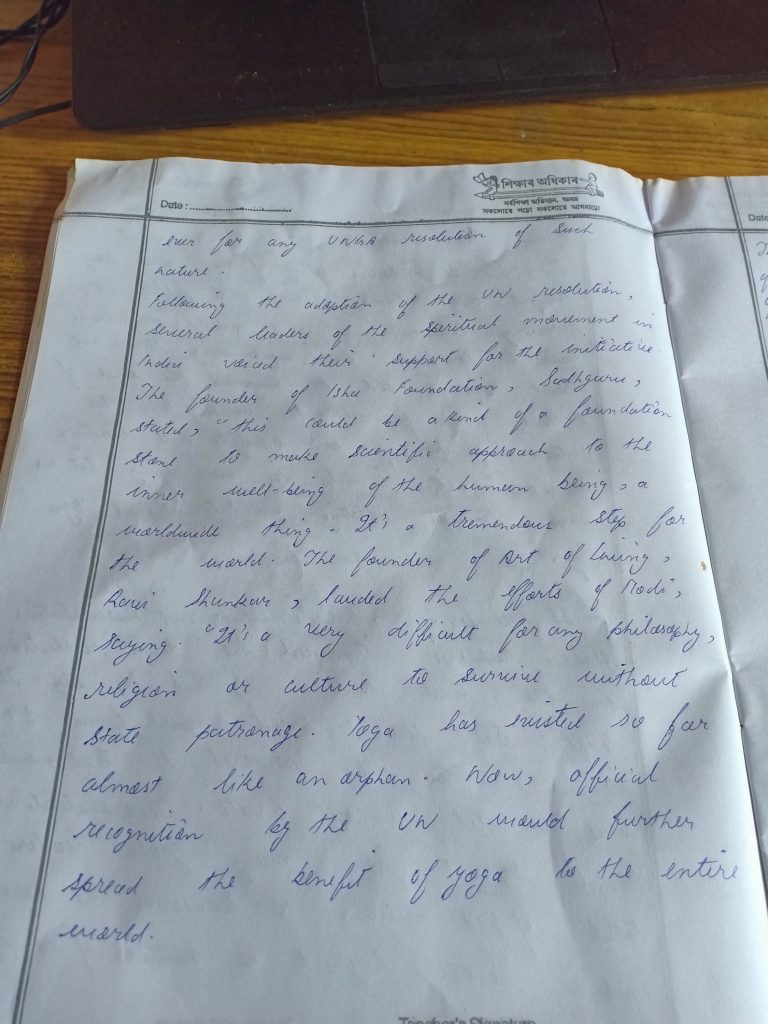 শিক্ষাৰ অধিকাৰ
সৰ্বশিক্ষা অভিযান, অসম
সকলোৱে পঢ়ো সকলোৱে আগবাঢ়ো
Date :
Date
ever for any UNGA resolution of such
nature.
Following the adoption of the UN resolution,
several leaders of the spiritual movement in
India voiced their support for the initiative.
The founder of Isha Foundation, Sadhguru,
stated, "this could be a kind of a foundation
stone to make scientific approach to the
inner well-being of the human being, a
worldwide thing - It's a tremendous step for
the world. The founder of Art of Living,
Ravi Shankar, lauded the efforts of Modi,
saying. "It's a very difficult for any philosophy,
religion or culture to survive without
state patronage. Yoga has existed so far
almost like an orphan. Now, official
recognition by the UN would further
spread the benefit of yoga to the entire
world.
Teacher's Signature